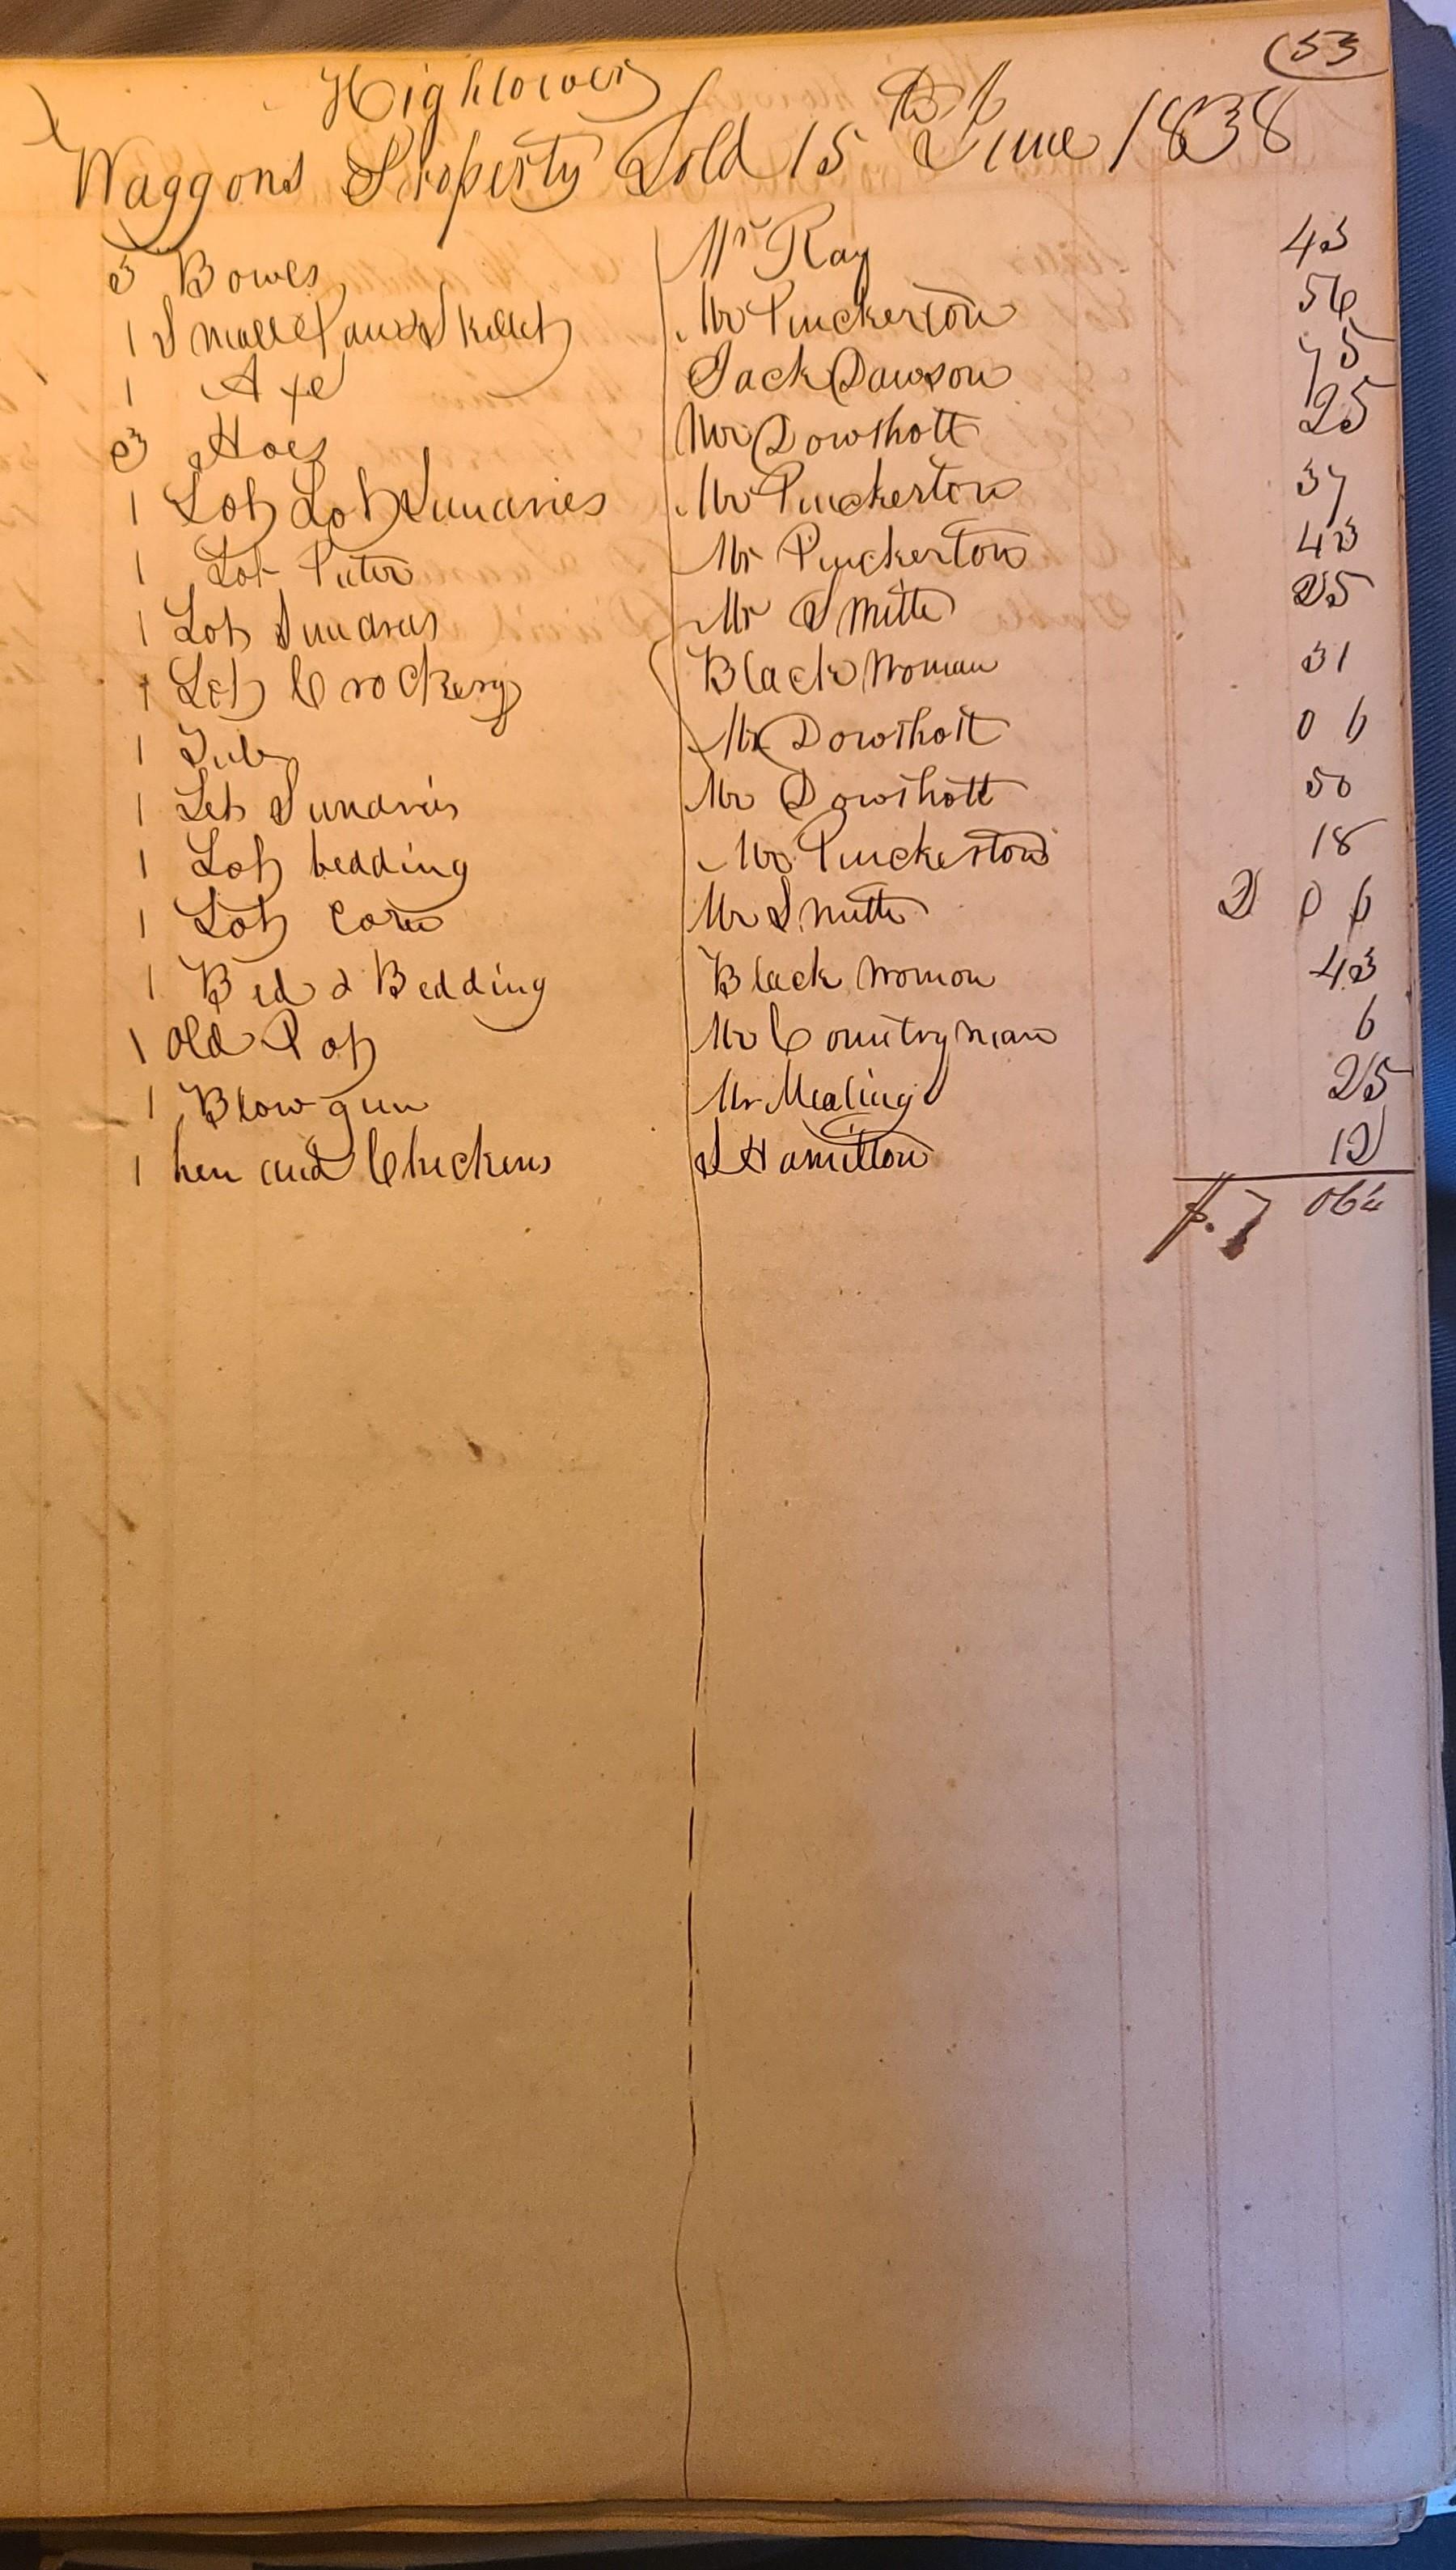 (53
Hightower
Waggons Property Sold 15 June 1838
3 Bowls Mr Ray 43
1 Small Pan & Skillet Mr Pinckerton 56
1 Axe Jack Dawson 75
3 Hoes Mr Dowthott 25
1 Lot Lot Sundries Mr Pinckerton 37
1 Lot Puter Mr Pinckerton 43
1 Lot Sundries Mr Smith 25
1 Lot Crockery Black Woman 31
1 Tub Mr Dowthott 06
1 Lot Sundries Mr Dowthott 50
1 Lot bedding Mr Pinckerton 18
1 Lot Corn Mr Smith 2 06
1 Bed & Bedding Black Womon 43
1 Old Pot Mr Countryman 6
1 Blow gun Mr Mealing 25
1 hen and Chickens S Hamilton 12
$.7 06¼